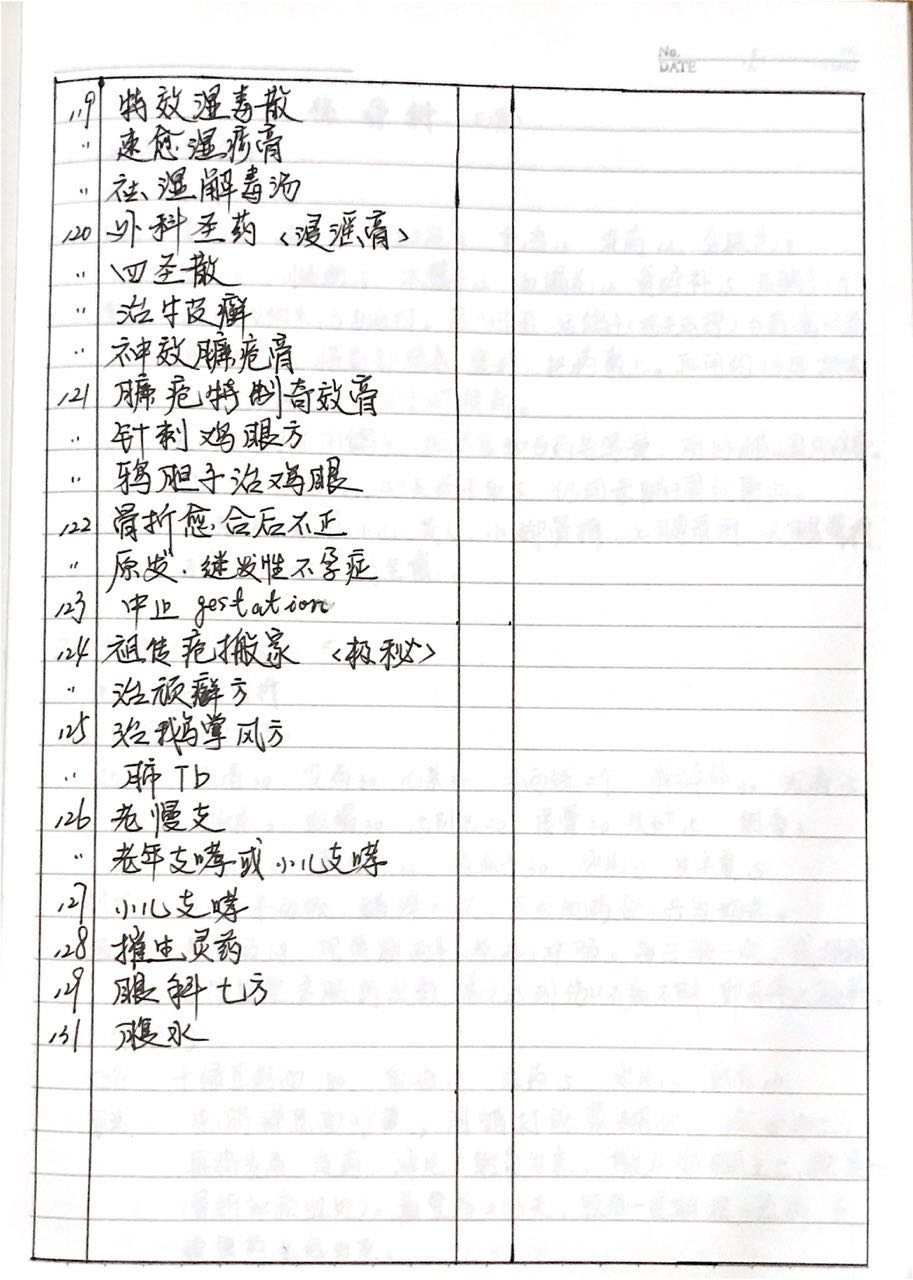 No.
DATE
119 特效湿毒散
〃 速愈湿疹膏
〃 祛湿解毒汤
120 外科圣药<浸淫膏>
〃 四圣散
〃 治牛皮癣
〃 神效臁疮膏
121 臁疮特制奇效膏
〃 针刺鸡眼方
〃 鸦胆子治鸡眼
122 骨折愈合后不正
〃 原发.继发性不孕症
123 中止 gestation
124 祖传疮搬家 <极秘>
〃 治顽癣方
125 治鹅掌风方
〃 肺Tb
126 老慢支
〃 老年支哮或小儿支哮
127 小儿支哮
128 摧生灵药
129 眼科七方
131 腹水